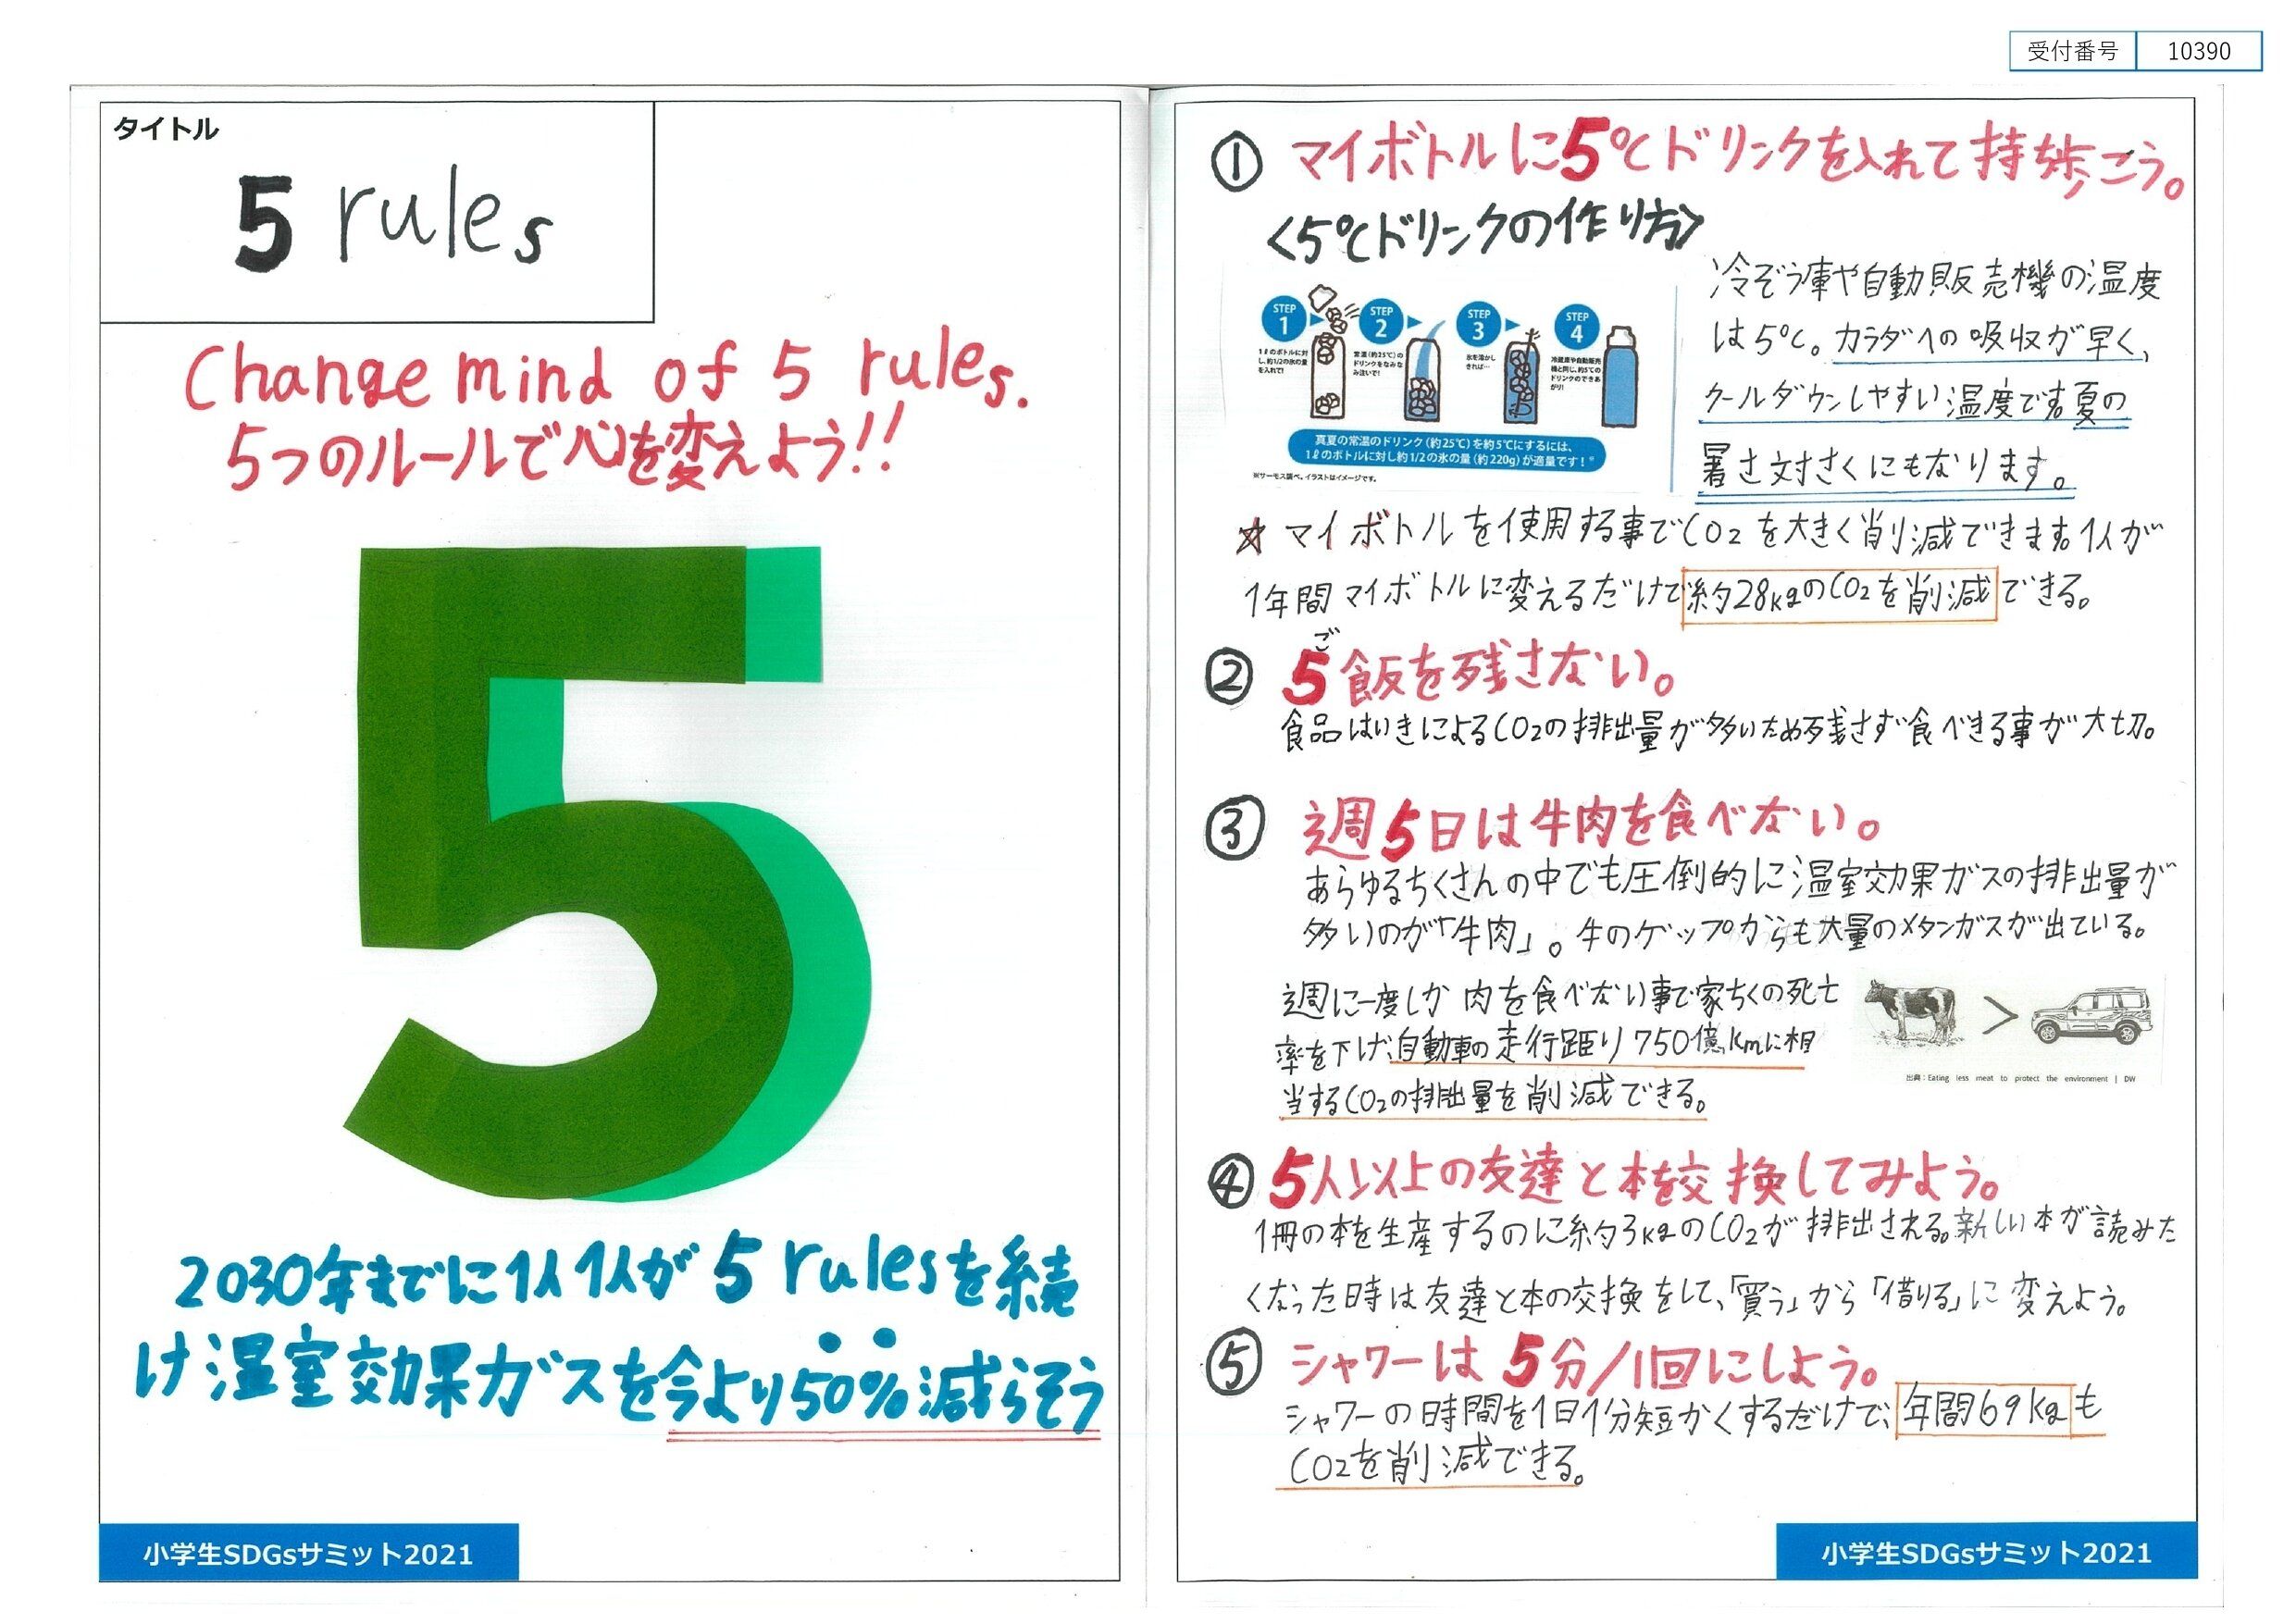 受付番号 10390
タイトル
5 rules
Change mind of 5 rules.
5つのルールで心を変えよう!!
5
2030年までに1人1人が5 rulesを続
け温室効果ガスを今より50%減らそう
小学生SDGsサミット2021
① マイボトルに5℃ドリンクを入れて持ち歩こう。
<5℃ドリンクの作り方>
STEP 1
1ℓのボトルに対
し、約1/2の氷の量
を入れて!
STEP 2
常温(約25℃)の
ドリンクをなみな
み注いで!
STEP 3
氷を溶かし
きれば…
STEP 4
冷蔵庫や自動販売
機と同じ、約5℃の
ドリンクのできあ
がり!
真夏の常温のドリンク(約25℃)を約5℃にするには、
1ℓのボトルに対し約1/2の氷の量(約220g)が適量です!※
※サーモス調べ。イラストはイメージです。
冷ぞう庫や自動販売機の温度
は5℃。カラダへの吸収が早く、
クールダウンしやすい温度です。夏の
暑さ対さくにもなります。
☆マイボトルを使用する事でCO2を大きく削減できます。1人が
1年間マイボトルに変えるだけで約28kgのCO2を削減できる。
ご
② 5飯を残さない。
食品はいきによるCO2の排出量が多いため残さず食べきる事が大切。
③ 週5日は牛肉を食べない。
あらゆるちくさんの中でも圧倒的に温室効果ガスの排出量が
多いのが「牛肉」。牛のゲップからも大量のメタンガスが出ている。
週に一度しか肉を食べない事で家ちくの死亡
率を下げ、自動車の走行距り750億kmに相
当するCO2の排出量を削減できる。
>
出典:Eating less meat to protect the environment | DW
④ 5人以上の友達と本を交換してみよう。
1冊の本を生産するのに約3kgのCO2が排出される。新しい本が読みた
くなった時は友達と本の交換をして、「買う」から「借りる」に変えよう。
⑤ シャワーは5分/1回にしよう。
シャワーの時間を1日1分短かくするだけで、年間69kgも
CO2を削減できる。
小学生SDGsサミット2021